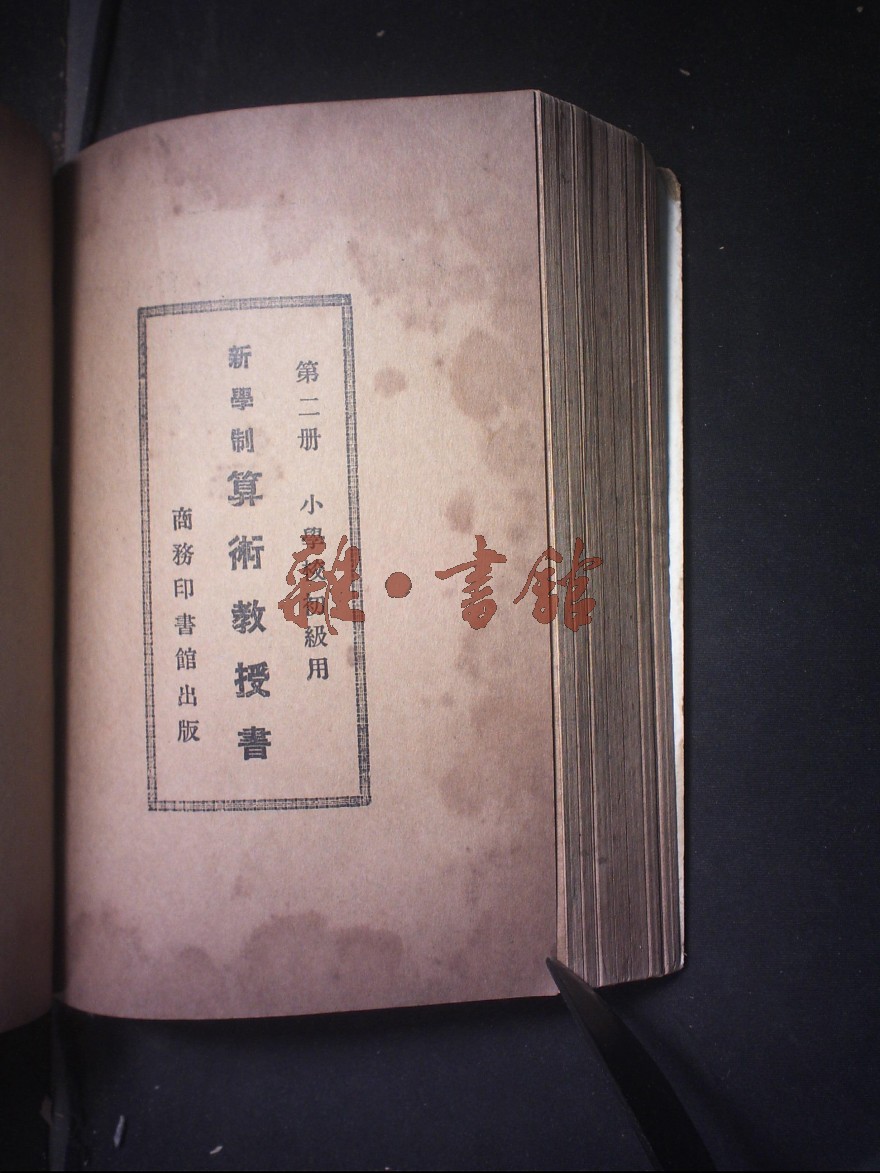 第二册 小學校初級用
新學制算術教授書
商務印書館出版
雜·書館